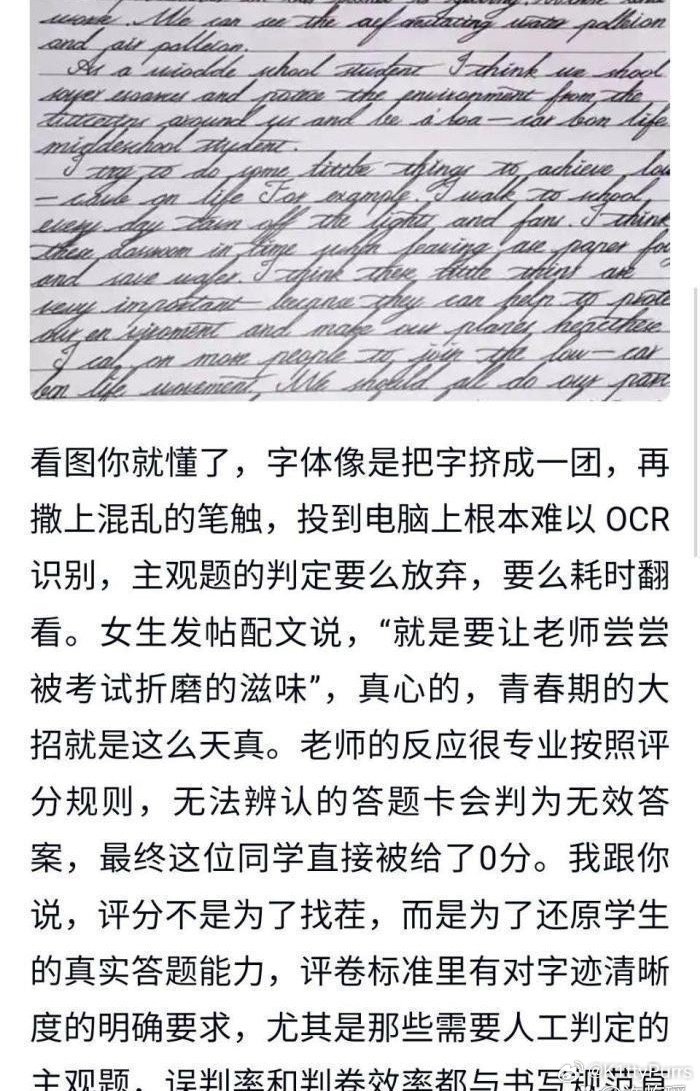 work. We can see the
water pollution
and air polleion.
As a middle school student I think we shool
and protce the environment from the
around us and be a loa-car bon life
middeschool student.
I try to do some little things to achieve low
on life For example. I walk to school
every day turn off the lights and fans. I think
in time when leaving
and save wafer. I think these little thins are
very important because they can help to prote
our en and make our planes
I cal on more people to join the low-car
bon life movement. We should all do our part
看图你就懂了，字体像是把字挤成一团，再
撒上混乱的笔触，投到电脑上根本难以 OCR
识别，主观题的判定要么放弃，要么耗时翻
看。女生发帖配文说，“就是要让老师尝尝
被考试折磨的滋味”，真心的，青春期的大
招就是这么天真。老师的反应很专业按照评
分规则，无法辨认的答题卡会判为无效答
案，最终这位同学直接被给了0分。我跟你
说，评分不是为了找茬，而是为了还原学生
的真实答题能力，评卷标准里有对字迹清晰
度的明确要求，尤其是那些需要人工判定的
主观题，误判率和判卷效率都与书写
@KittyPurrs